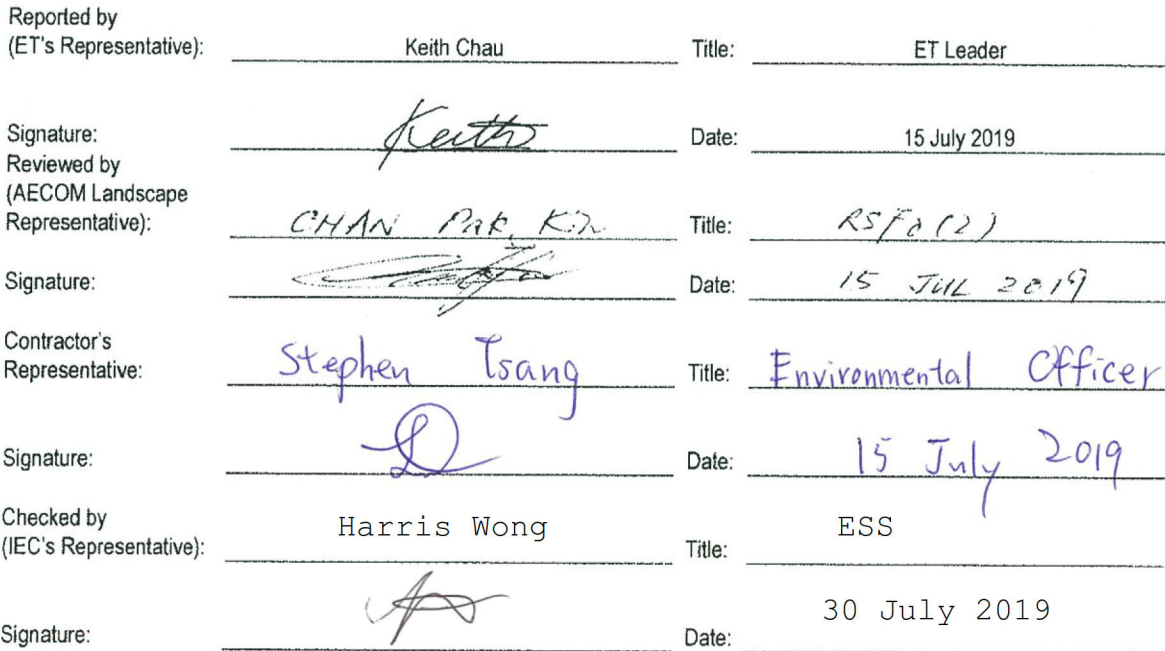 Reported by
(ET's Representative): Keith Chau Title: ET Leader
Signature: Keith Date: 15 July 2019
Reviewed by
(AECOM Landscape
Representative): CHAN Pak Kin Title: RSFO(2)
Signature: Date: 15 JUL 2019
Contractor's
Representative: Stephen Tsang Title: Environmental Officer
Signature: Date: 15 July 2019
Checked by
(IEC's Representative): Harris Wong Title: ESS
Signature: Date: 30 July 2019